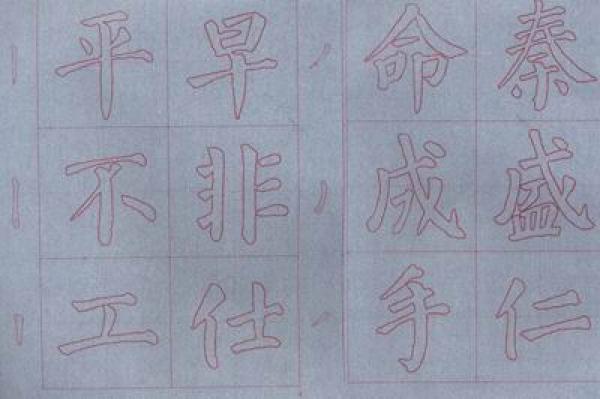 平 早 命 秦
不 非 成 盛
工 仕 手 仁